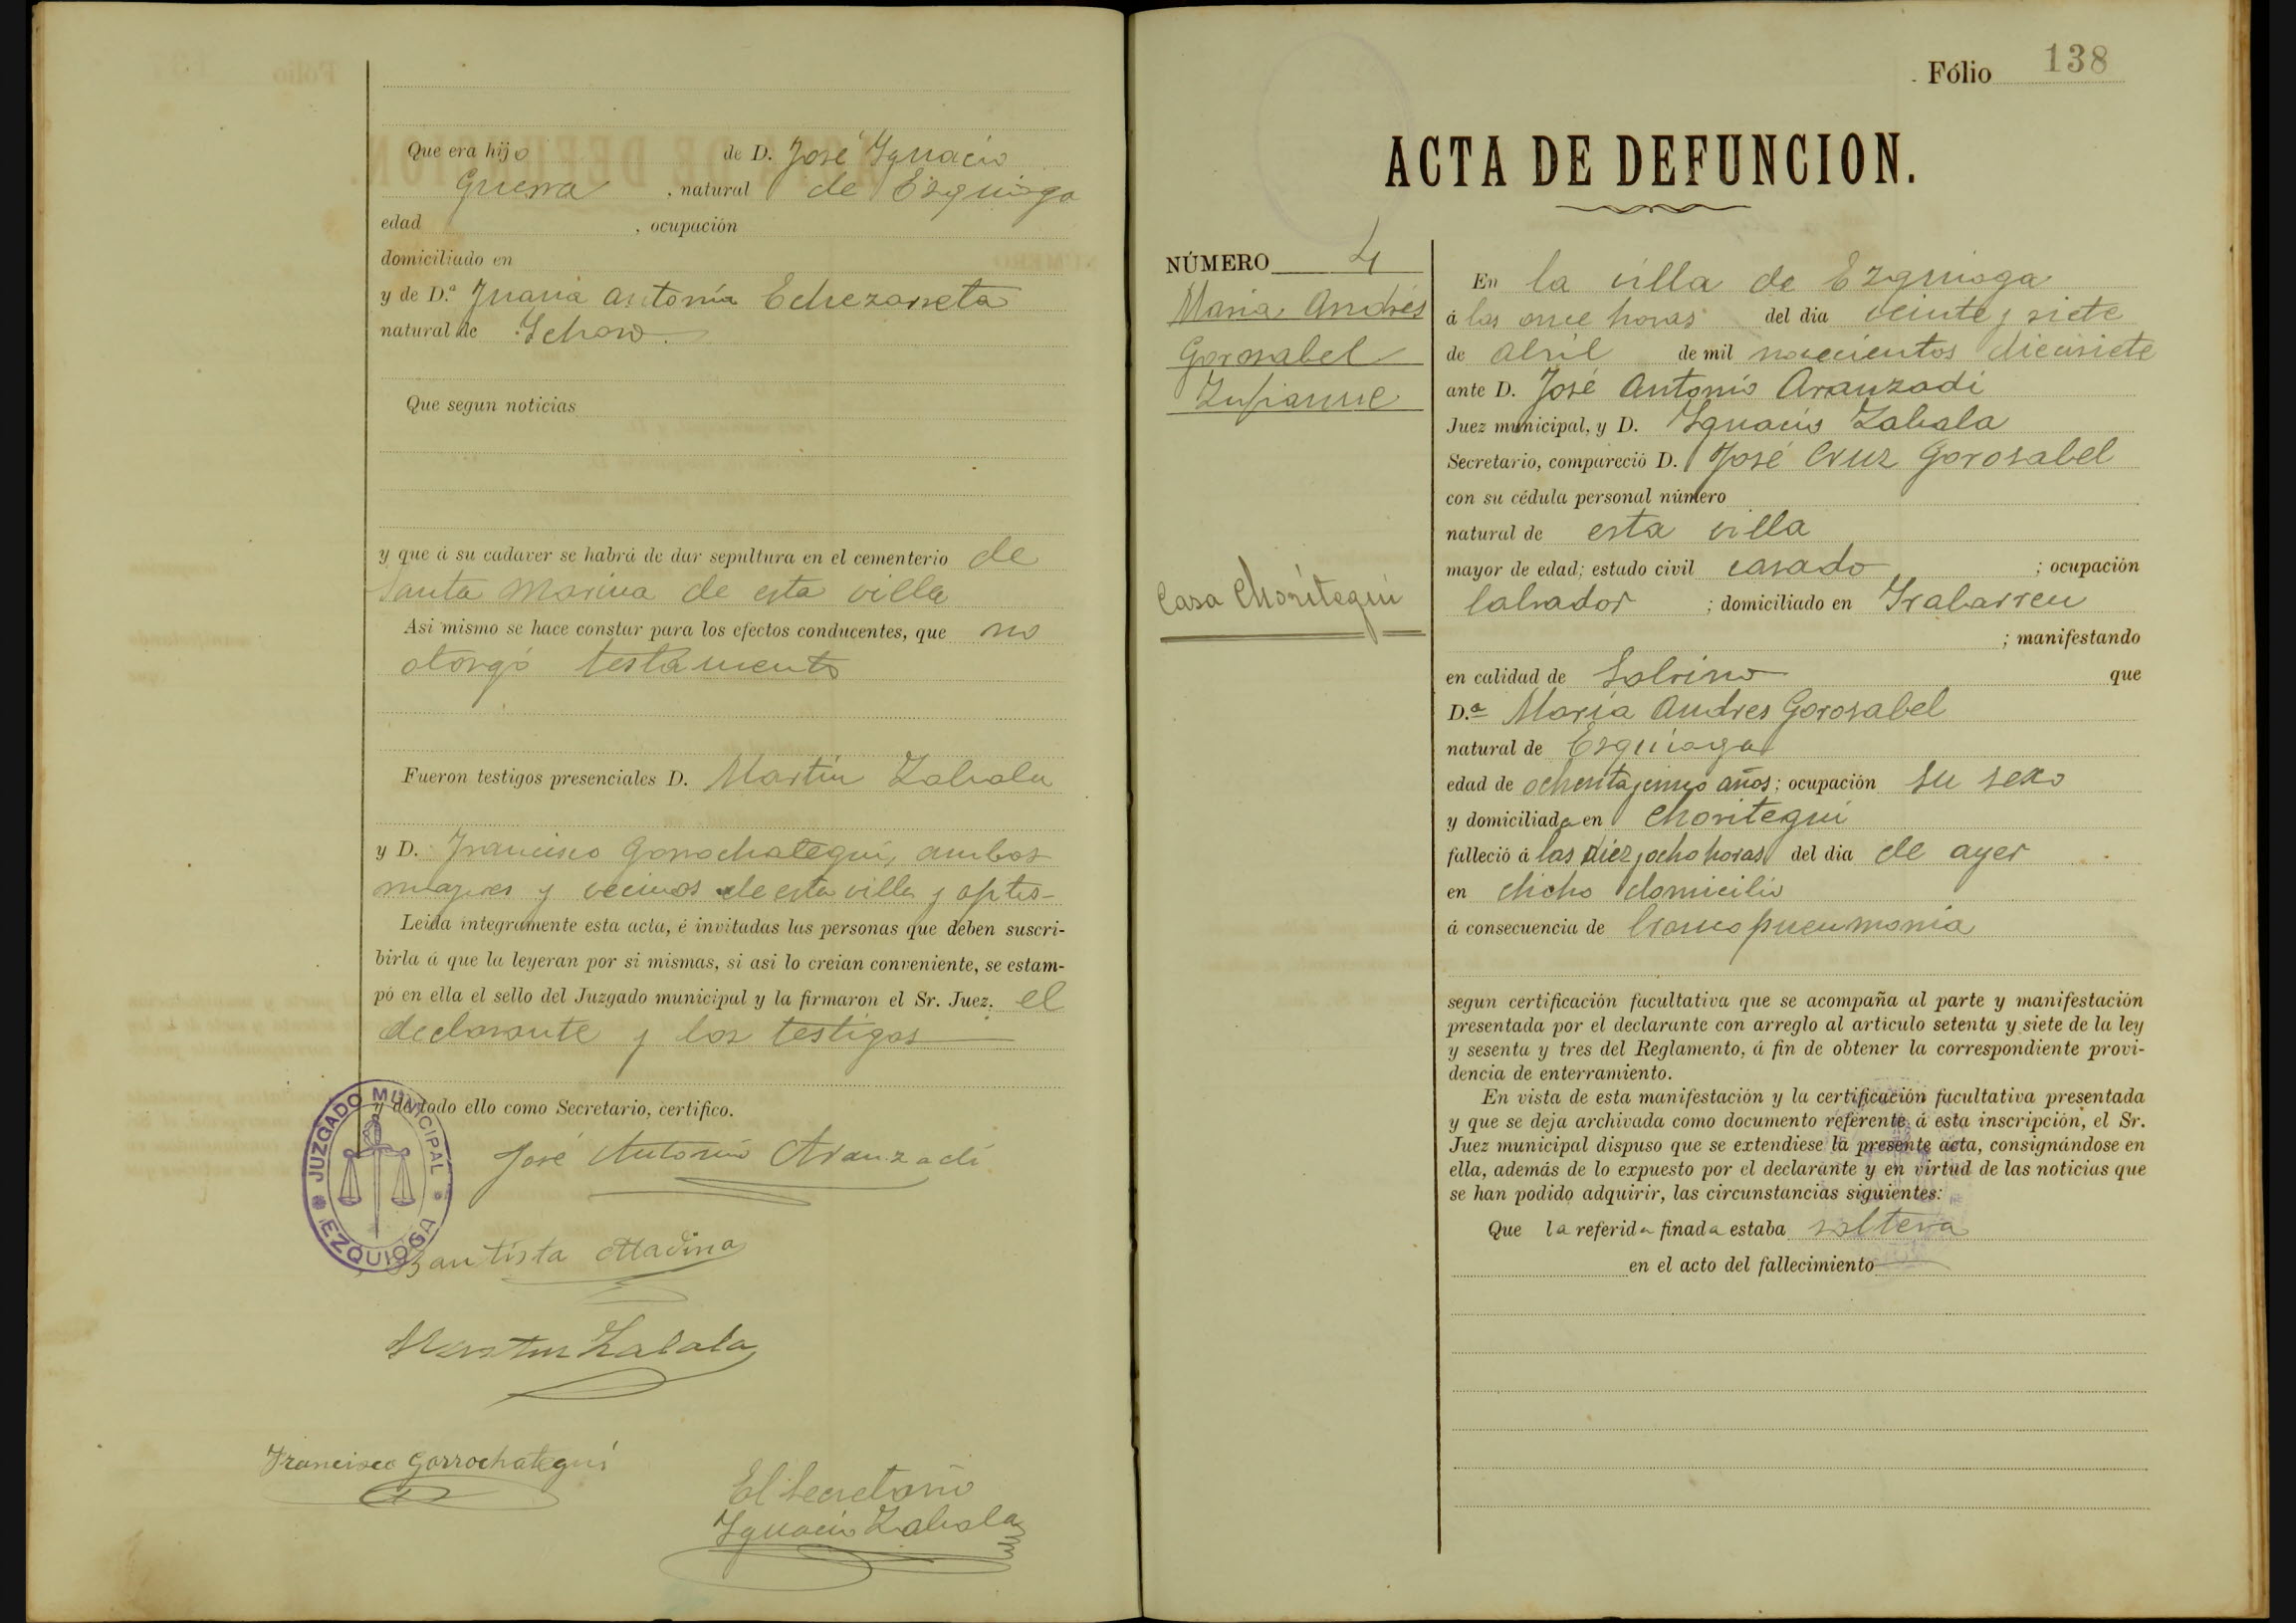 Que era hijo de D. José Ygnacio
Guerra, natural de Ezquioga
edad , ocupación
domiciliado en
y de D.ª Juana Antonia Echezarreta
natural de Ichaso.
Que segun noticias
y que á su cadaver se habrá de dar sepultura en el cementerio de
Santa Marina de esta villa
Asi mismo se hace constar para los efectos conducentes, que no
otorgó testamento
Fueron testigos presenciales D. Martin Zabala
y D. Francisco Gorrochategui, ambos
mayores y vecinos de esta villa y aptos
Leida integramente esta acta, é invitadas las personas que deben suscri-
birla á que la leyeran por si mismas, si asi lo creian conveniente, se estam-
pó en ella el sello del Juzgado municipal y la firmaron el Sr. Juez, el
declarante y los testigos
y de todo ello como Secretario, certifico.
JUZGADO MUNICIPAL
EZQUIOGA
José Antonio Aranzadi
Bautista Madina
Martin Zabala
Francisco Gorrochategui
El Secretario
Ygnacio Zabala
Fólio 138
ACTA DE DEFUNCION.
NÚMERO 4
Maria Andrés
Gorosabel
Zupiarrue
Casa Choritegui
En la villa de Ezquioga
á las once horas del dia veinte y siete
de Abril de mil novecientos diecisiete
ante D. José Antonio Aranzadi
Juez municipal, y D. Ygnacio Zabala
Secretario, compareció D. José Cruz Gorosabel
con su cédula personal número
natural de esta villa
mayor de edad; estado civil casado ; ocupación
labrador ; domiciliado en Yrabarren
; manifestando
en calidad de Sobrino que
D.ª Maria Andres Gorosabel
natural de Ezquioga
edad de ochenta y cinco años; ocupación su sexo
y domiciliada en Choritegui
falleció á las diez y ocho horas del dia de ayer
en dicho domicilio
á consecuencia de broncopneumonia
segun certificación facultativa que se acompaña al parte y manifestación
presentada por el declarante con arreglo al articulo setenta y siete de la ley
y sesenta y tres del Reglamento, á fin de obtener la correspondiente provi-
dencia de enterramiento.
En vista de esta manifestación y la certificación facultativa presentada
y que se deja archivada como documento referente á esta inscripción, el Sr.
Juez municipal dispuso que se extendiese la presente acta, consignándose en
ella, además de lo expuesto por el declarante y en virtud de las noticias que
se han podido adquirir, las circunstancias siguientes:
Que la referida finada estaba soltera
en el acto del fallecimiento